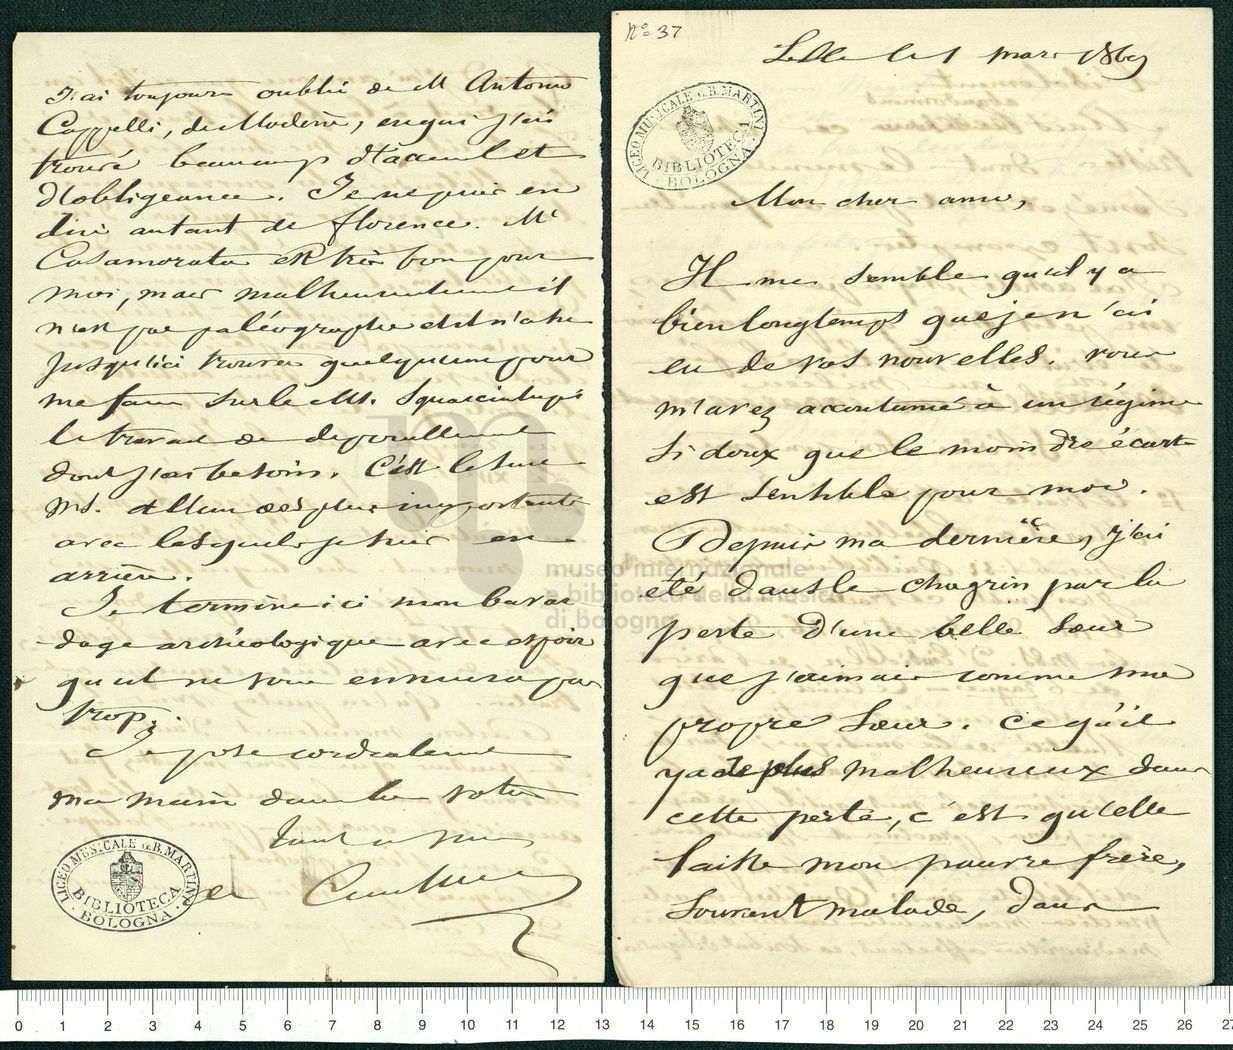 No 37
Lille le 1 mars 1869
LICEO MUSICALE G.B. MARTINI
BIBLIOTECA
BOLOGNA
Mon cher ami,
Il me semble qu'il y a
bien longtemps que je n'ai
eu de vos nouvelles. vous
m'avez accoutumé à un régime
si doux que le moindre écart
est sensible pour moi.
Depuis ma dernière, j'ai
été dans le chagrin par la
perte d'une belle soeur
que j'aimais comme ma
propre soeur. ce qu'il
y a de plus malheureux dans
cette perte, c'est qu'elle
laisse mon pauvre frère,
souvent malade, dans
J'ai toujours oublié de M Antonio
Cappelli, de Modène, en qui j'ai
trouvé beaucoup d'accueil et
d'obligeance. Je ne puis en
dire autant de florence. Mr
Casamorata est très bon pour
moi, mais malheureusement il
n'est pas paléographe et il n'a
jusqu'ici trouvé quelqu'un pour
me faire sur le Ms. Squarcialupi
le travail de depouillement
dont j'ai besoin. C'est le seul
Ms. et l'un des plus importants
avec lesquels je suis en
arrière.
Je termine ici mon bavar
dage archéologique avec espoir
qu'il ne vous ennuiera pas
trop.
Je pose cordialement
ma main dans la votre
Tout à vous
de Coussemaker
LICEO MUSICALE G.B. MARTINI
BIBLIOTECA
BOLOGNA
museo internazionale
e biblioteca della musica
di bologna
0 1 2 3 4 5 6 7 8 9 10 11 12 13 14 15 16 17 18 19 20 21 22 23 24 25 26 27